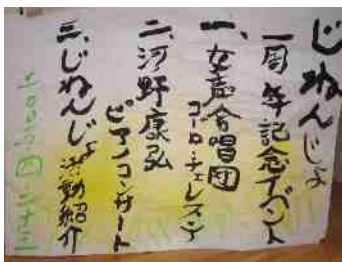 じねんじょ
一周年記念イベント
一、女声合唱団
コーロ・チェレステ
二、河野康弘
ピアノコンサート
三、じねんじょ活動紹介